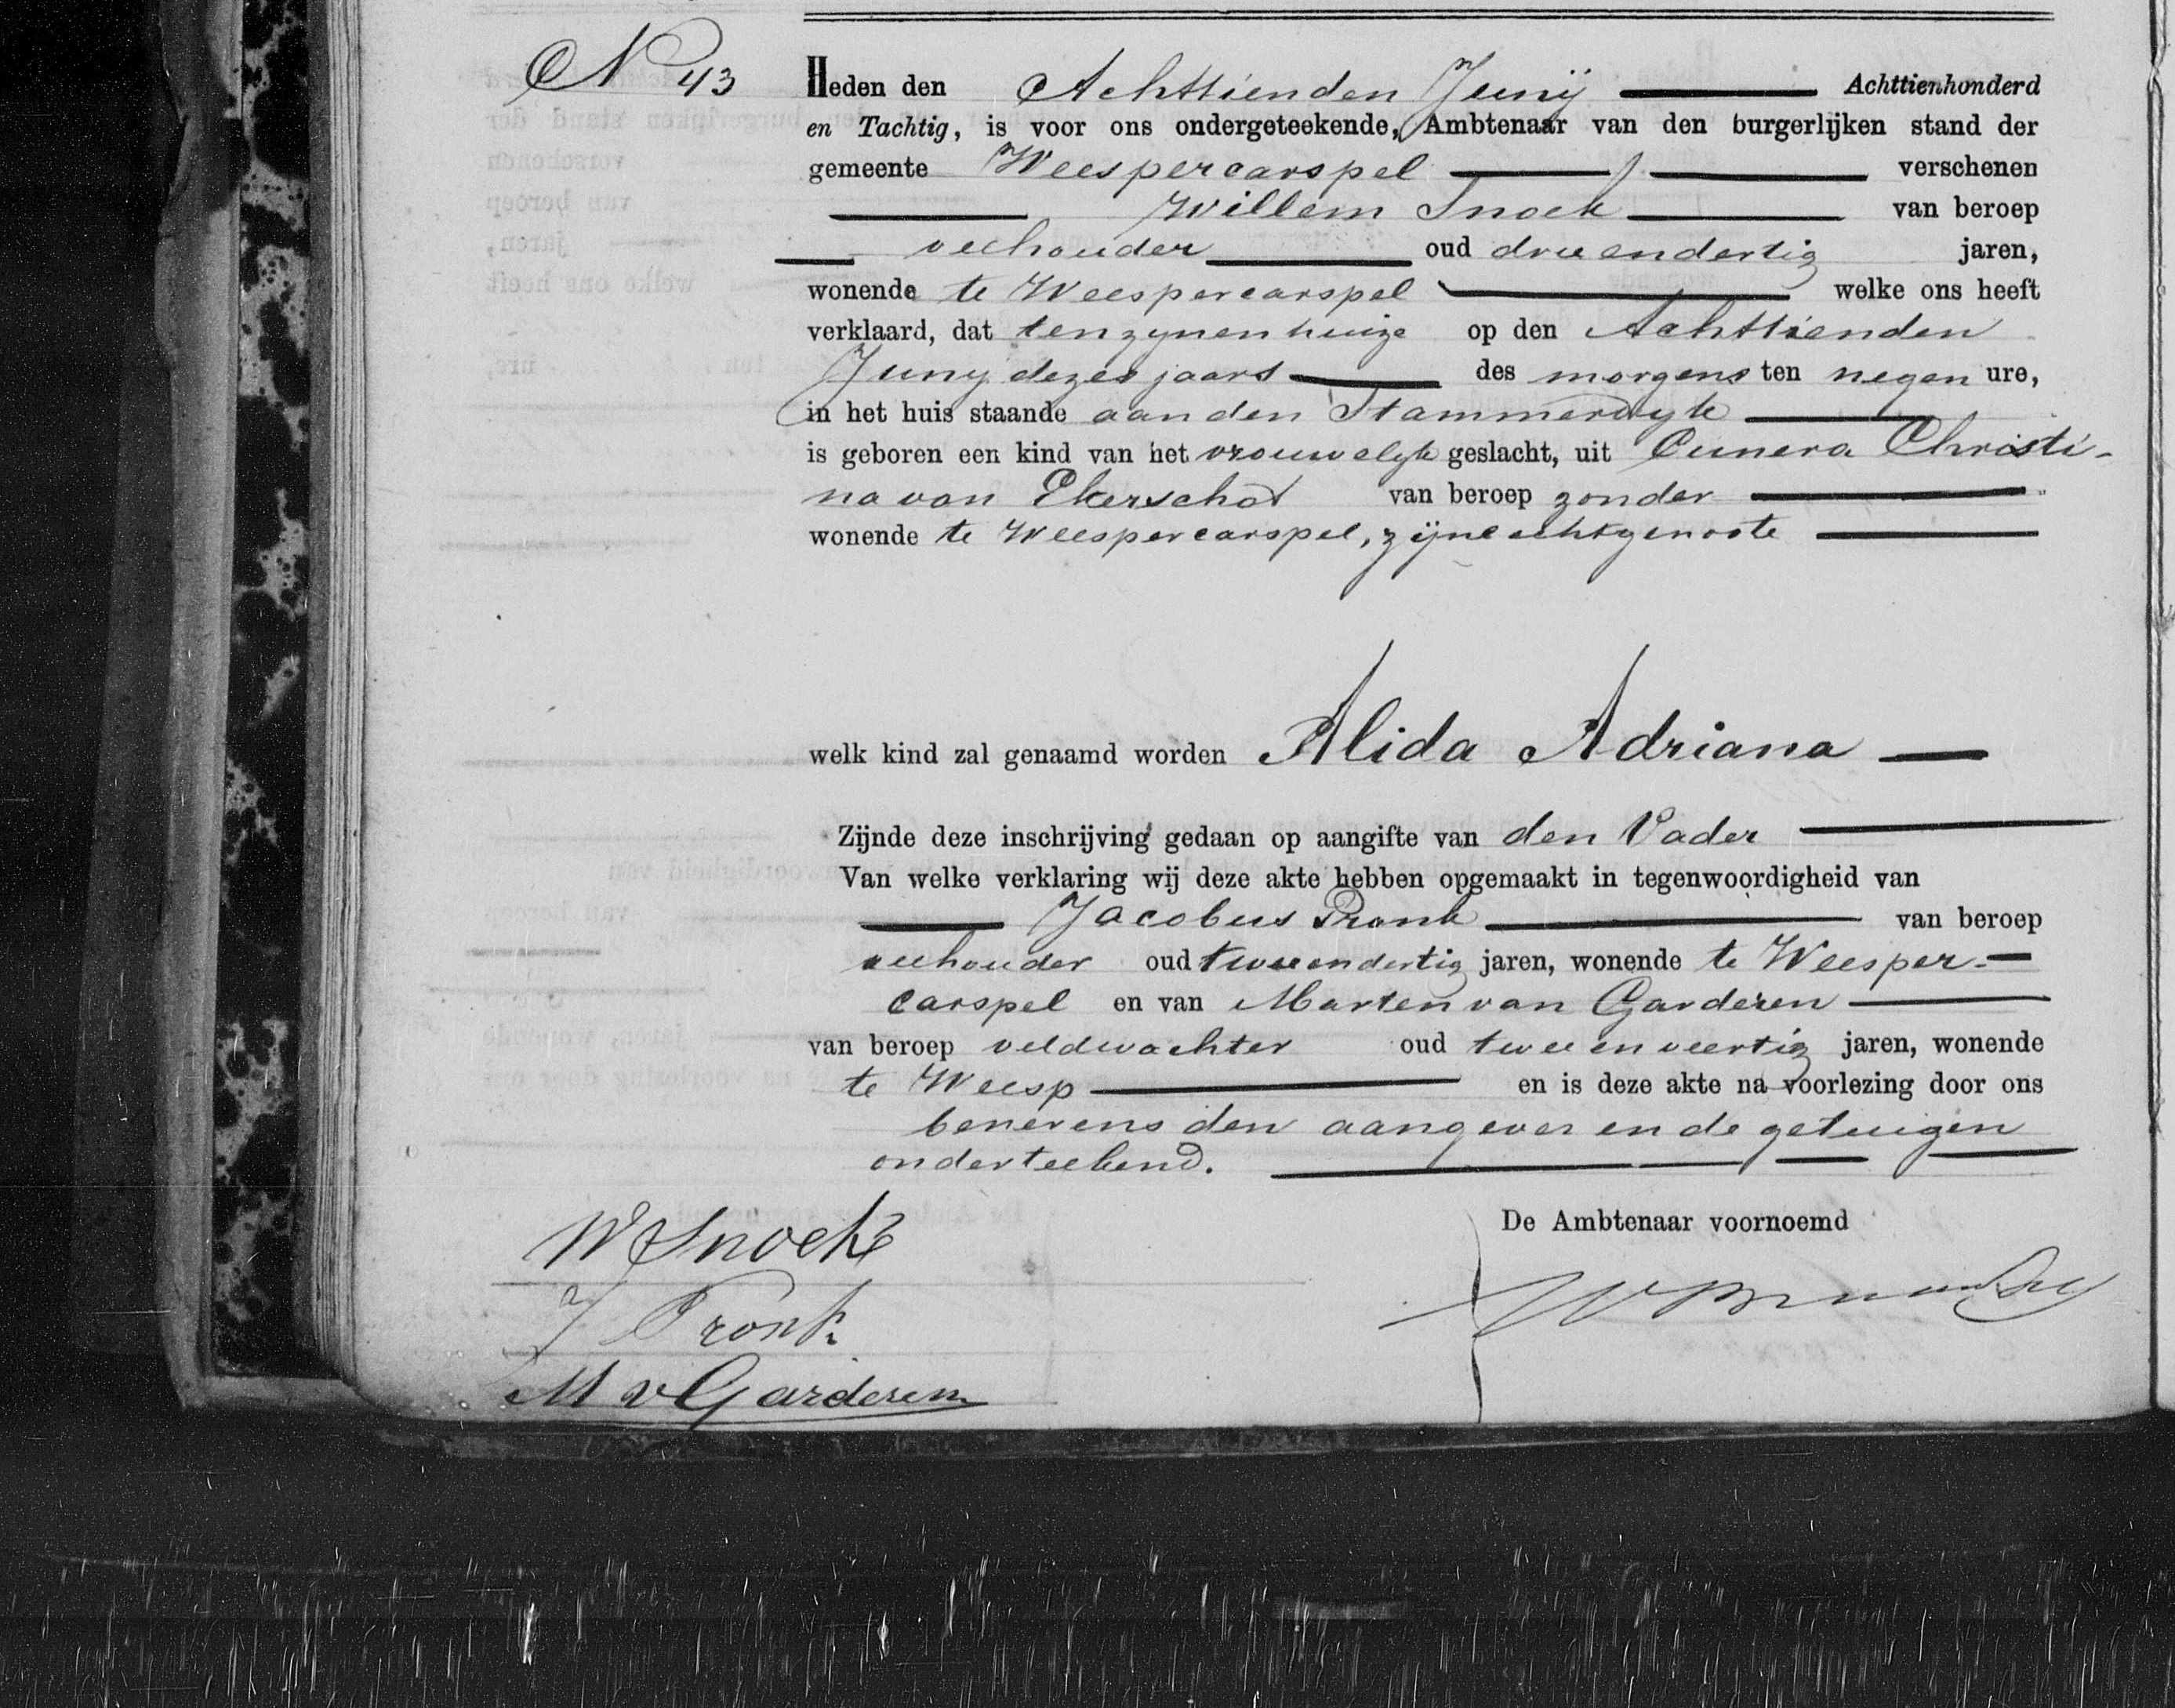 N 43
Heden den Achttienden Junij Achttienhonderd
en Tachtig, is voor ons ondergeteekende, Ambtenaar van den burgerlijken stand der
gemeente Weespercarspel verschenen
Willem Snoek van beroep
veehouder oud drieendertig jaren,
wonende te Weespercarspel welke ons heeft
verklaard, dat ten zynen huize op den Achttienden
Juny dezes jaars des morgens ten negen ure,
in het huis staande aan den Stammerdyk
is geboren een kind van het vrouwelyk geslacht, uit Cunera Christi-
na van Ekerschot van beroep zonder
wonende te Weespercarspel, zijne echtgenoote
welk kind zal genaamd worden Alida Adriana
Zijnde deze inschrijving gedaan op aangifte van den Vader
Van welke verklaring wij deze akte hebben opgemaakt in tegenwoordigheid van
Jacobus Pronk van beroep
veehouder oud tweeendertig jaren, wonende te Weesper-
carspel en van Marten van Garderen
van beroep veldwachter oud twee en veertig jaren, wonende
te Weesp en is deze akte na voorlezing door ons
benevens den aangever en de getuigen
onderteekend.
De Ambtenaar voornoemd
W Snoek
J Pronk
M v Garderen